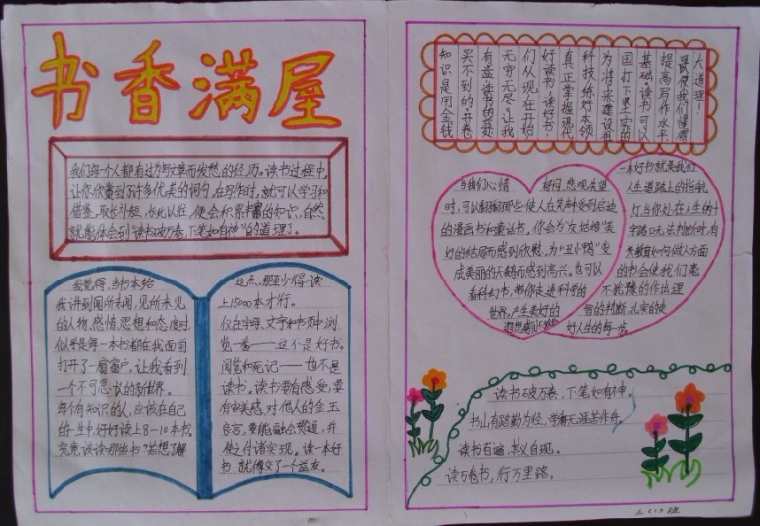 书香满屋
我们每个人都有过为写文章而发愁的经历。读书过程中,
让你欣赏到了许多优美的词句,在写作时,就可以学习和
借鉴,取长补短,长此以往,便会积累丰富的知识,自然
就能体会到“读书破万卷,下笔如有神”的道理了。
我觉得,当书本给
我讲到闻所未闻,见所未见
的人物、感情、思想和态度时,
似乎是每一本书都在我面前
打开了一扇窗户,让我看到
一个不可思议的新世界。
每个有知识的人,应该在自己
的一生中,好好读上8-10本书,
究竟该读哪些书?若想了解
这点,那至少得读
上15000本才行。
仅在字母、文字和书页中浏
览一番——这不是读书。
阅览和死记——也不是
读书。读书要有感受,要
有审美感,对他人的金玉
良言,要能融会贯通,并
使之付诸实现。读一本好
书,就像交了一个益友。
知识是用金钱
买不到的,开卷
有益,读书的益处
无穷无尽,让我
们从现在开始
好读书,读好书,
真正掌握现代
科技,练好本领
为将来建设祖
国打下坚实的
基础。读书可以
提高写作水平,
大道理:
当我们心情
时,可以翻翻那些使人在笑声中受到启迪
的漫画书和童话书,你会为“灰姑娘”美
好的结局而感到欣慰,为“丑小鸭”变
成美丽的天鹅而感到高兴。也可以
看科幻书,带你走进科学的
世界,产生美好的
一本好书就是我们
人生道路上的指航
灯,当你处在人生的十
字路口,无法判断时,有
关教育如何做人方面
的书会使我们毫
不犹豫的作出理
智的判断,扎实的走
好人生的每一步。
读书破万卷,下笔如有神。
书山有路勤为径,学海无涯苦作舟。
读书百遍,其义自现。
读万卷书,行万里路。